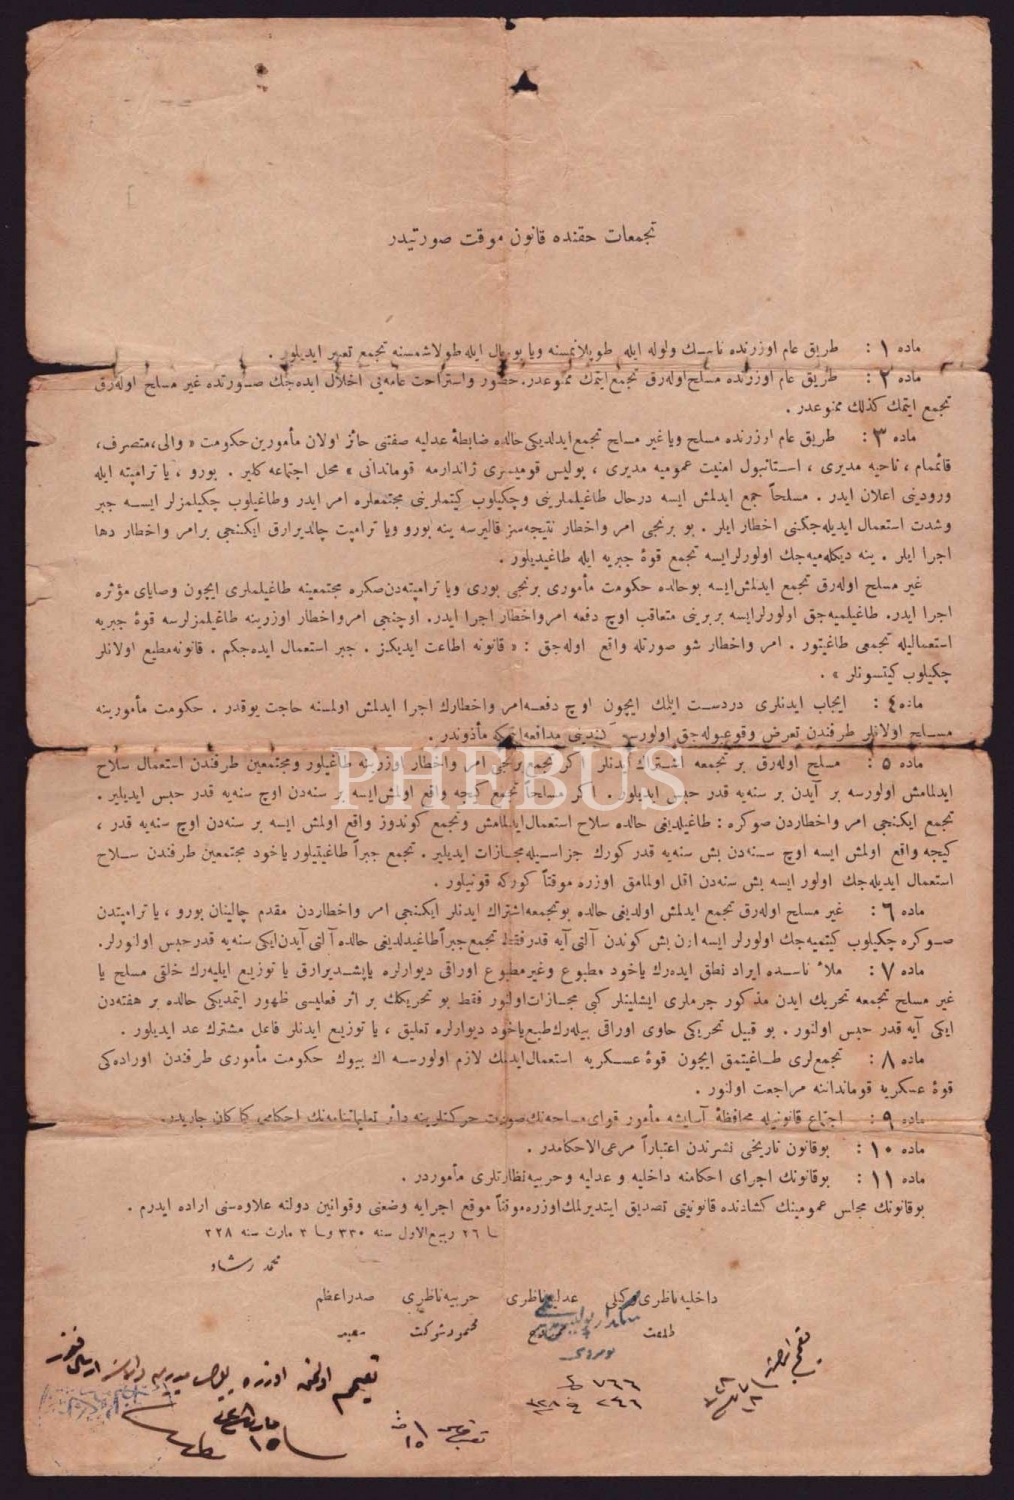 تجمعات حقنده قانون موقت صورتیدر
ماده ١ : طریق عام اوزرنده ناسك ولوله ایله طوپلانمسنه ویا بو حال ایله طولاشمسنه تجمع تعبیر ایدیلور .
ماده ٢ : طریق عام اوزرنده مسلح اوله‌رق تجمع ایتمك ممنوعدر. حضور واستراحت عامه‌یی اخلال ایده‌جك صورتده غیر مسلح اوله‌رق
تجمع ایتمك كذلك ممنوعدر .
ماده ٣ : طریق عام اوزرنده مسلح ویا غیر مسلح تجمع ایدلدیكی حالده ضابطهٔ عدلیه صفتنی حائز اولان مأمورین حكومت « والی، متصرف،
قائمقام ، ناحیه مدیری ، استانبول امنیت عمومیه مدیری ، پولیس قومیسری ژاندارمه قوماندانی » محل اجتماعه كلیر . بورو ، یا ترامپته ایله
ورودینی اعلان ایدر . مسلحاً تجمع ایدلمش ایسه درحال طاغیلملرینی وچكیلوب كیتملرینی مجتمعلره امر ایدر وطاغیلوب چكیلمزلر ایسه جبر
وشدت استعمال ایدیله‌جكنی اخطار ایلر . بو برنجی امر واخطار نتیجه‌سز قالیرسه ینه بورو ویا ترامپت چالدیرارق ایكنجی برامر واخطار دها
اجرا ایلر . ینه دیكله‌میه‌جك اولورلر ایسه تجمع قوهٔ جبریه ایله طاغیدیلور .
غیر مسلح اوله‌رق تجمع ایدلمش ایسه بو حالده حكومت مأموری برنجی بوری ویا ترامپته‌دن صكره مجتمعینه طاغیلملری ایچون وصایای مؤثره
اجرا ایدر. طاغیلمیه‌جق اولورلر ایسه بربرینی متعاقب اوچ دفعه امر واخطار اجرا ایدر. اوچنجی امر واخطار اوزرینه طاغیلمزلرسه قوهٔ جبریه
استعمالیله تجمعی طاغیتور . امر واخطار شو صورتله واقع اوله‌جق : « قانونه اطاعت ایدیكز . جبر استعمال ایده‌جكم . قانونه مطیع اولانلر
چكیلوب كیتسونلر » .
ماده ٤ : ایجاب ایدنلری دردست ایتمك ایچون اوچ دفعه امر واخطارك اجرا ایدلمش اولمسنه حاجت یوقدر . حكومت مأمورینه
مسلح اولانلر طرفندن تعرض وقوعبوله‌جق اولورسه كندینی مدافعه ایتمكه مأذوندر .
ماده ٥ : مسلح اوله‌رق بر تجمعه اشتراك ایدنلر اكر تجمع برنجی امر واخطار اوزرینه طاغیلور ومجتمعین طرفندن استعمال سلاح
ایدلمامش اولورسه بر آیدن بر سنه‌یه قدر حبس ایدیلور . اكر مسلحاً تجمع كیجه واقع اولمش ایسه بر سنه‌دن اوچ سنه‌یه قدر حبس ایدیلیر .
تجمع ایكنجی امر واخطاردن صوكره : طاغیلدیغی حالده سلاح استعمال ایدلمامش وتجمع كوندوز واقع اولمش ایسه بر سنه‌دن اوچ سنه‌یه قدر ،
كیجه واقع اولمش ایسه اوچ سنه‌دن بش سنه‌یه قدر كورك جزاسیله مجازات ایدیلیر . تجمع جبراً طاغیتیلور یاخود مجتمعین طرفندن سلاح
استعمال ایدیله‌جك اولور ایسه بش سنه‌دن اقل اولمامق اوزره موقتاً كوركه قونیلور .
ماده ٦ : غیر مسلح اوله‌رق تجمع ایدلمش اولدیغی حالده بو تجمعه اشتراك ایدنلر ایكنجی امر واخطاردن مقدم چالینان بورو ، یا ترامپتدن
صوكره چكیلوب كیتمیه‌جك اولورلر ایسه اون بش كوندن آلتی آیه قدر فقط تجمع جبراً طاغیدلدیغی حالده آلتی آیدن ایكی سنه‌یه قدر حبس اولنورلر.
ماده ٧ : ملأ ناسده ایراد نطق ایده‌رك یاخود مطبوع وغیر مطبوع اوراقی دیوارلره یاپشدیرارق یا توزیع ایلیه‌رك خلقی مسلح یا
غیر مسلح تجمعه تحریك ایدن مذكور جرملری ایشلینلر كبی مجازات اولنور فقط بو تحریكك بر اثر فعلیسی ظهور ایتمدیكی حالده بر هفته‌دن
ایكی آیه قدر حبس اولنور . بو قبیل تحریكی حاوی اوراقی بیله‌رك طبع یاخود دیوارلره تعلیق ، یا توزیع ایدنلر فاعل مشترك عد ایدیلور .
ماده ٨ : تجمعلری طاغیتمق ایچون قوهٔ عسكریه استعمال ایدلمك لازم اولورسه اك بیوك حكومت مأموری طرفندن اوراده‌كی
قوهٔ عسكریه قوماندانته مراجعت اولنور .
ماده ٩ : اجتماع قانونیله محافظهٔ آسایشه مأمور قوای مسلحه‌نك صورت حركتلرینه دائر تعلیماتنامه‌نك احكامی كما كان جاریدر.
ماده ١٠ : بو قانون تاریخی نشرندن اعتباراً مرعی‌الاحكامدر .
ماده ١١ : بو قانونك اجرای احكامنه داخلیه و عدلیه و حربیه نظارتلری مأموردر .
بو قانونك مجلس عمومینك كشادنده قانونیتی تصدیق ایتدیرلمك اوزره موقتاً موقع اجرایه وضعنی وقوانین دولته علاوه‌سنی اراده ایدرم .
٢٦ ربیع‌الاول سنه ٣٣٠ و ٣ مارت سنه ٣٢٨
محمد رشاد
داخلیه ناظری وكیلی عدلیه ناظری حربیه ناظری صدراعظم
طلعت محمود شوكت سعید
٧٦٦
٢٤٦
تعمیم اولنمق اوزره
١٥ مارت